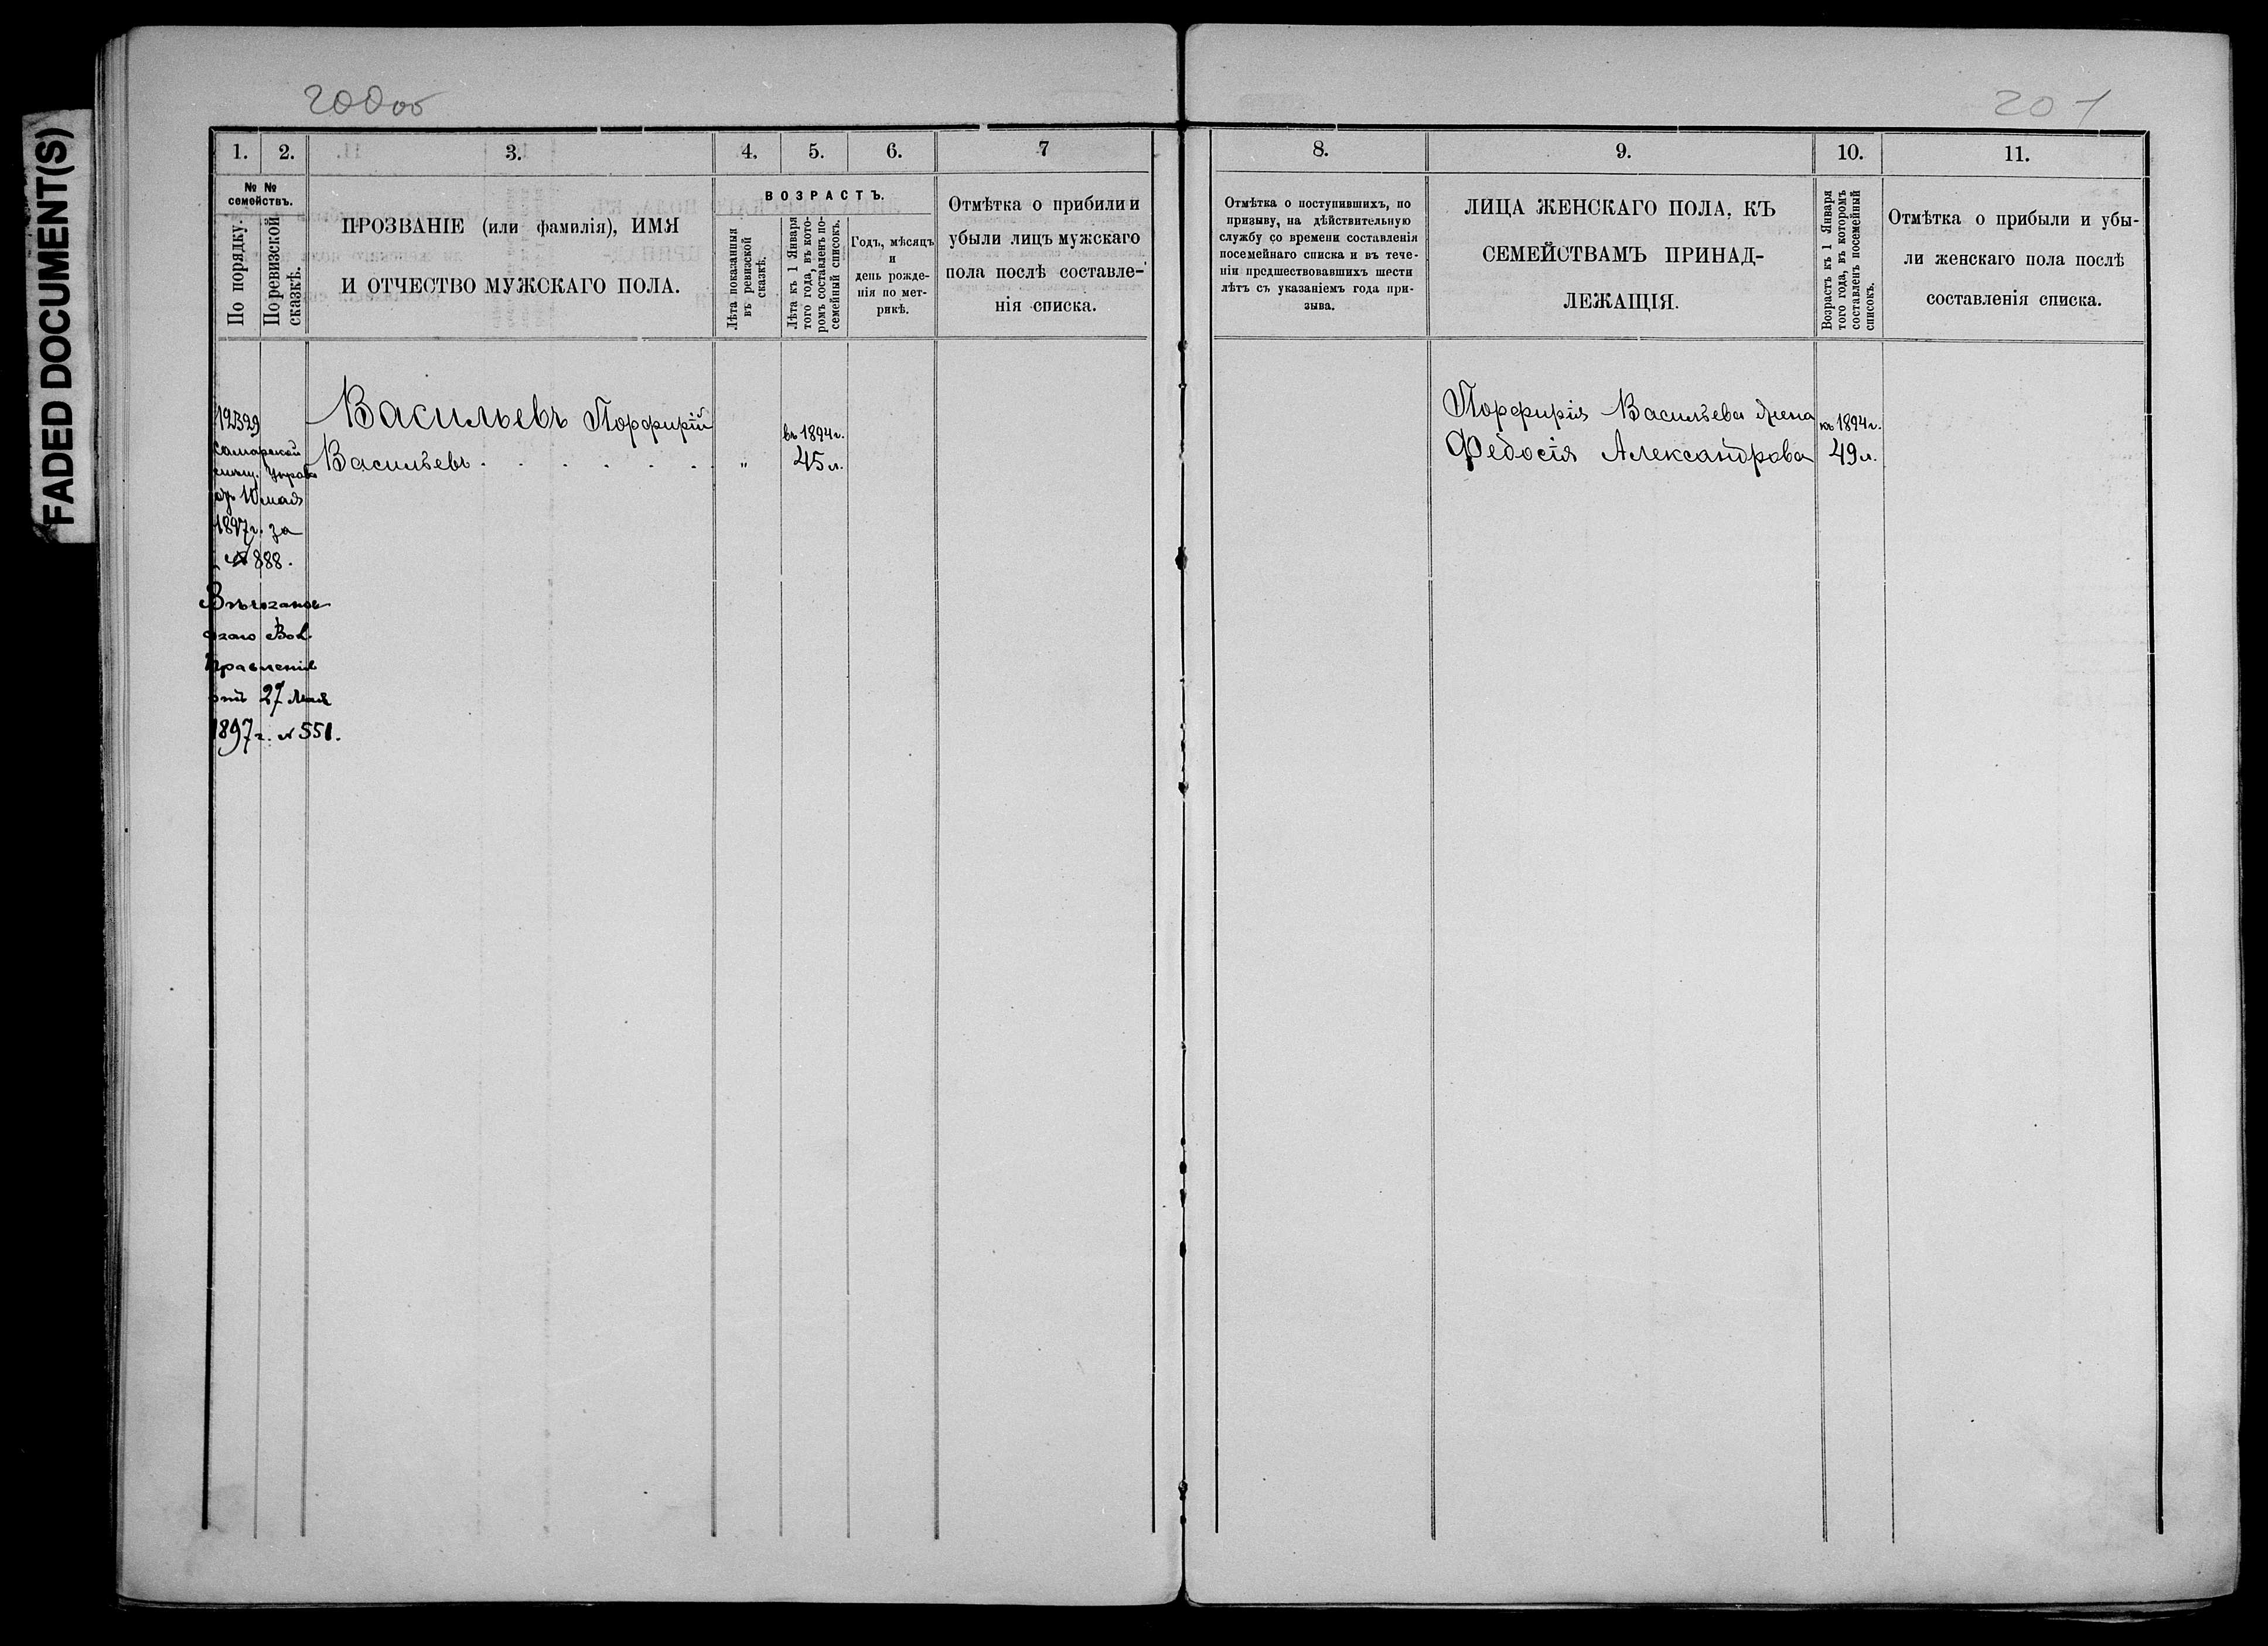 FADED DOCUMENT(S)
200об
201
1.
2.
3.
4.
5.
6.
7
№ №
семействъ.
По порядку.
По ревизской
сказкѣ.
ПРОЗВАНІЕ (или фамилія), ИМЯ
И ОТЧЕСТВО МУЖСКАГО ПОЛА.
ВОЗРАСТЪ.
Лѣта показанныя
въ ревизской
сказкѣ.
Лѣта къ 1 Января
того года, въ кото-
ромъ составленъ по-
семейный списокъ.
Годъ, мѣсяцъ
и
день рожде-
нія по мет-
рикѣ.
Отмѣтка о прибыли и
убыли лицъ мужскаго
пола послѣ составле-
нія списка.
12329
Самарской
мѣщ. Управы
отъ 10 мая
1897г. за
№ 888.
Волос.
Правленія
отъ 27 Мая
1897г. № 551.
Васильевъ Порфирій
Васильевъ . . . . . .
"
въ 1894г.
45 л.
8.
9.
10.
11.
Отмѣтка о поступившихъ, по
призыву, на дѣйствительную
службу со времени составленія
посемейнаго списка и въ тече-
ніи предшествовавшихъ шести
лѣтъ съ указаніемъ года при-
зыва.
ЛИЦА ЖЕНСКАГО ПОЛА, КЪ
СЕМЕЙСТВАМЪ ПРИНАД-
ЛЕЖАЩІЯ.
Возрастъ къ 1 Января
того года, въ которомъ
составленъ посемейный
списокъ.
Отмѣтка о прибыли и убы-
ли женскаго пола послѣ
составленія списка.
Порфирія Васильева жена
Федосія Александрова
къ 1894г.
49 л.